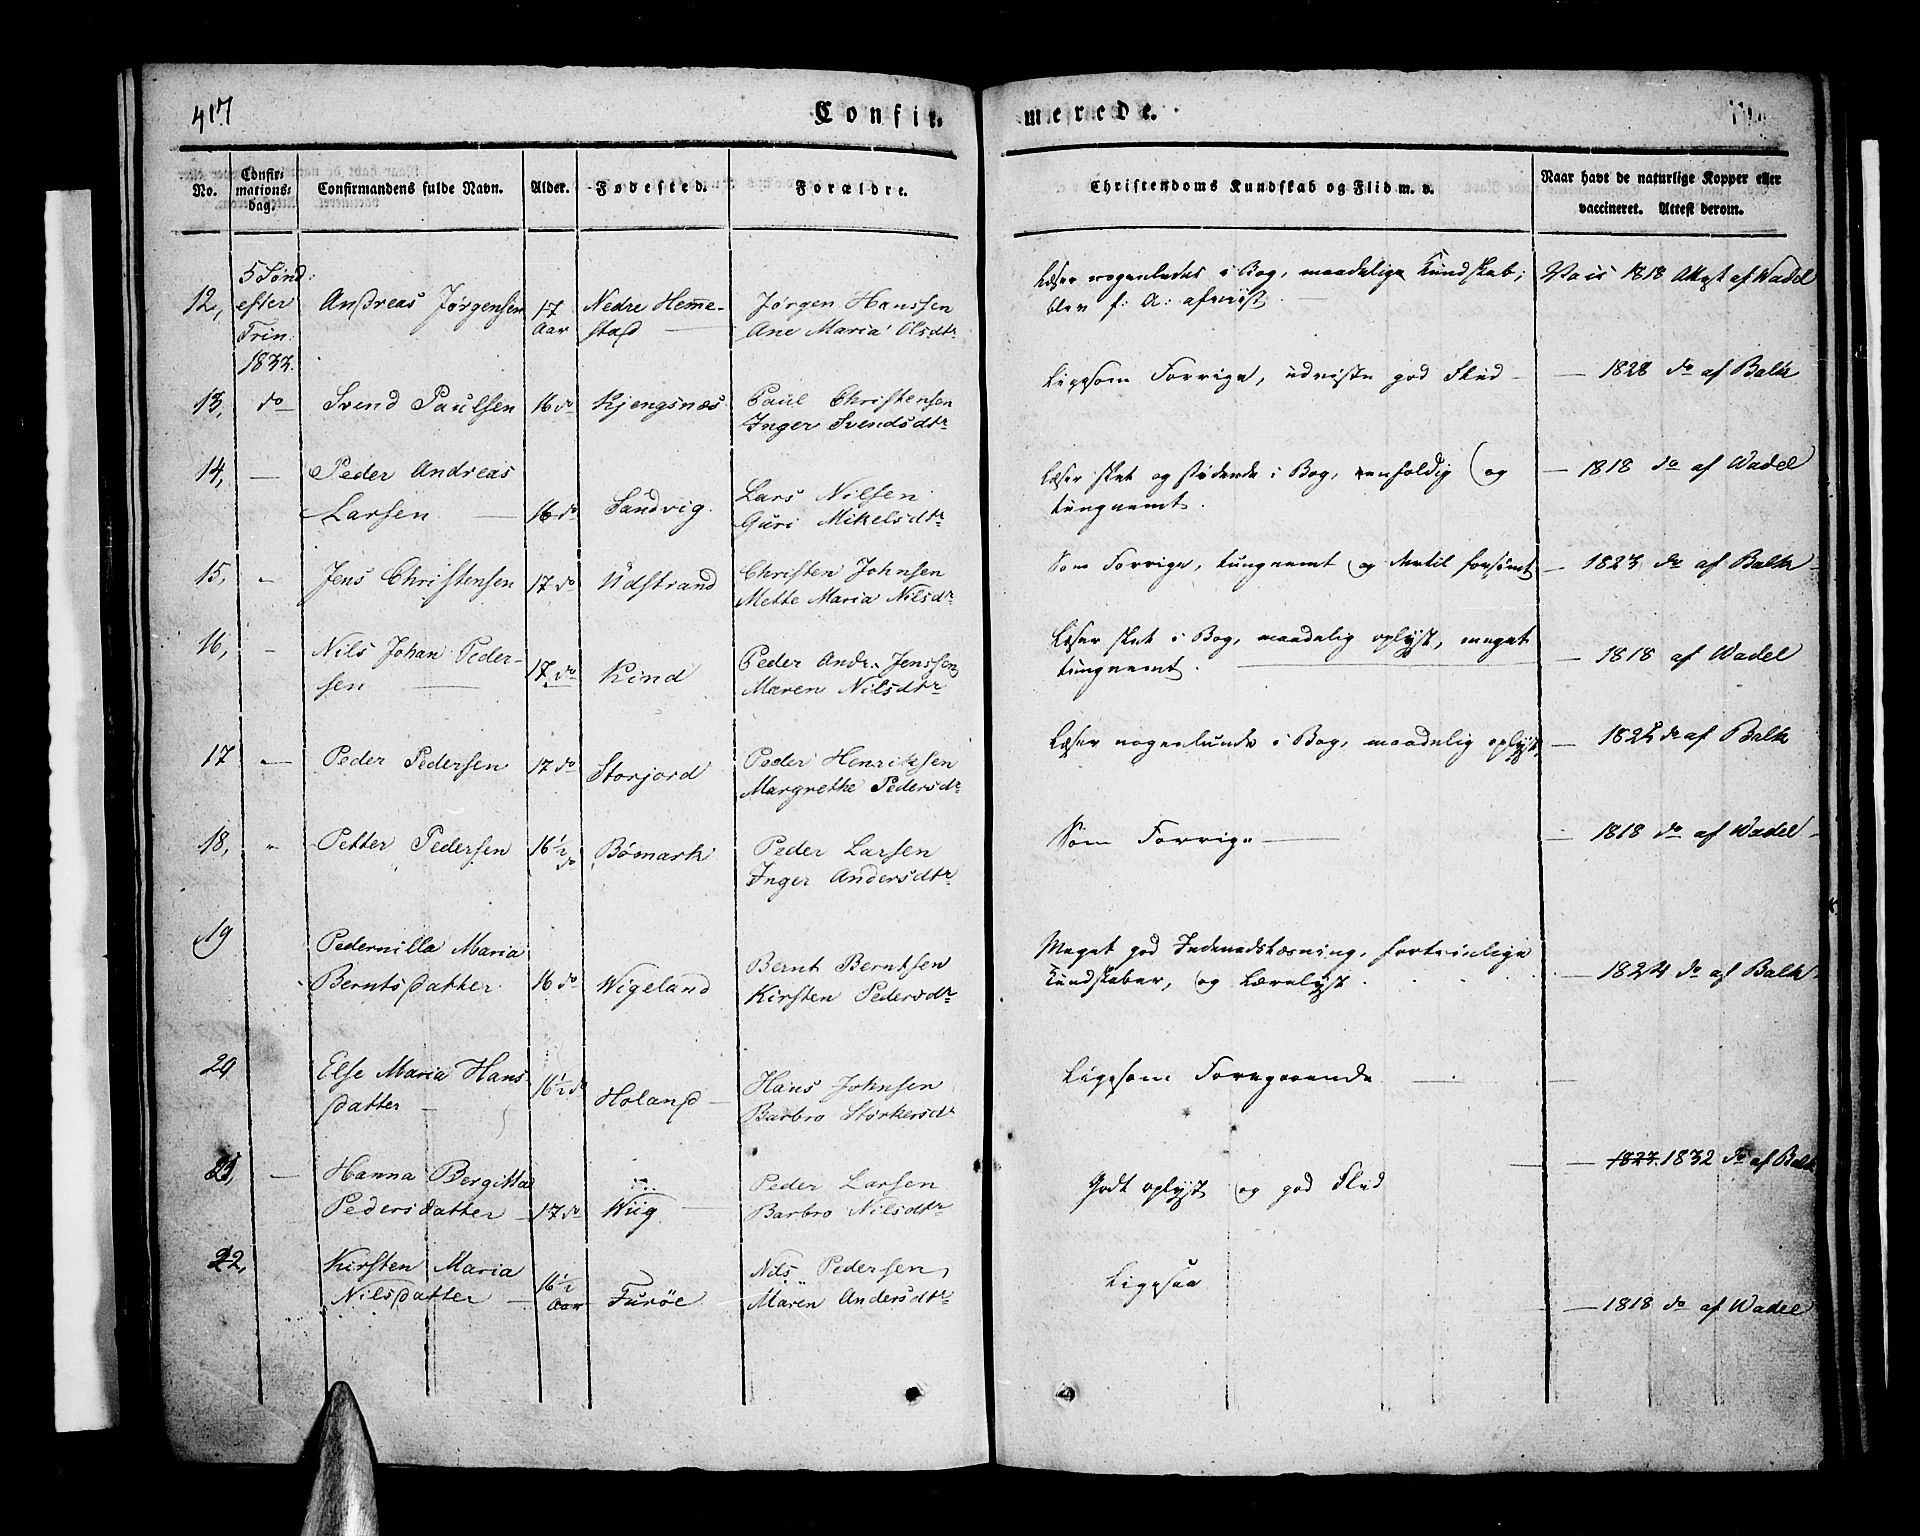 417
Confir-
merede.
No.
Confir-
mations-
dag.
Confirmandens fulde Navn.
Alder.
Fødested.
Forældre.
Christendoms Kundskab og Flid m. v.
Naar havt de naturlige Kopper eller
vaccineret. Attest derom.
12, 5 Sønd:
efter
Trin:
1833.
Andreas Jørgensen 17
Aar
Nedre Hemme-
stad
Jørgen Hanssen
Ane Maria Olsdtr
Læser nogenledes i Bog, maadelige Kundskab;
blev f: A: afviist
Vacis 1818 Attest af Wadel
13, do Svend Paulsen 16 do Kjengsnæs
Paul Christensen
Inger Svendsdtr
Ligesom Forrige, udviste god Flid
1828 do af Balk
14, Peder Andreas
Larsen 16 do Sandvig.
Lars Nilsen
Guri Mikelsdtr
Læser slet og stødende i Bog, eenfoldig og
tungnemt.
1818 do af Wadel
15, Jens Christensen 17 do Udstrand
Christen Johnsen
Mette Maria Nilsdtr
Som Forrige, tungnemt og forsømt
1823 do af Balk
16, Nils Johan Peder-
sen 17 do Kind
Peder Andr. Jenssen
Maren Nilsdtr
Læser slet i Bog, maadelig oplyst, meget
tungnemt.
1818 af Wadel
17 Peder Pedersen 17 do Storjord
Peder Henriksen
Margrethe Pedersdtr
Læser nogenlunde i Bog, maadelig oplyst,
do af Balk
18, Petter Pedersen 16 1/2 do Bømark
Peder Larsen
Inger Andersdtr
Som Forrige
1818 do af Wadel
19 Pedernilla Maria
Berntsdatter 16 do Wigeland
Bernt Berntsen
Kirsten Pedersdtr
Meget god Indenadslæsning, fortrinlige
Kundskaber, og Lærelyst.
1824 do af Balk
20 Else Maria Hans
datter 16 1/2 do Holand
Hans Johnsen
Barbro Størkersdtr
Ligesom Foregaaende
21, Hanna Bergitta
Pedersdatter 17 do Wiig
Peder Larsen
Barbro Nilsdtr
Godt oplyst og god Flid
1823. 1832 do af Balk
22, Kirsten Maria
Nilsdatter 16 1/2
Aar
Furöe
Nils Pedersen
Maren Andersdtr
Ligesaa
1818 do af Wadel